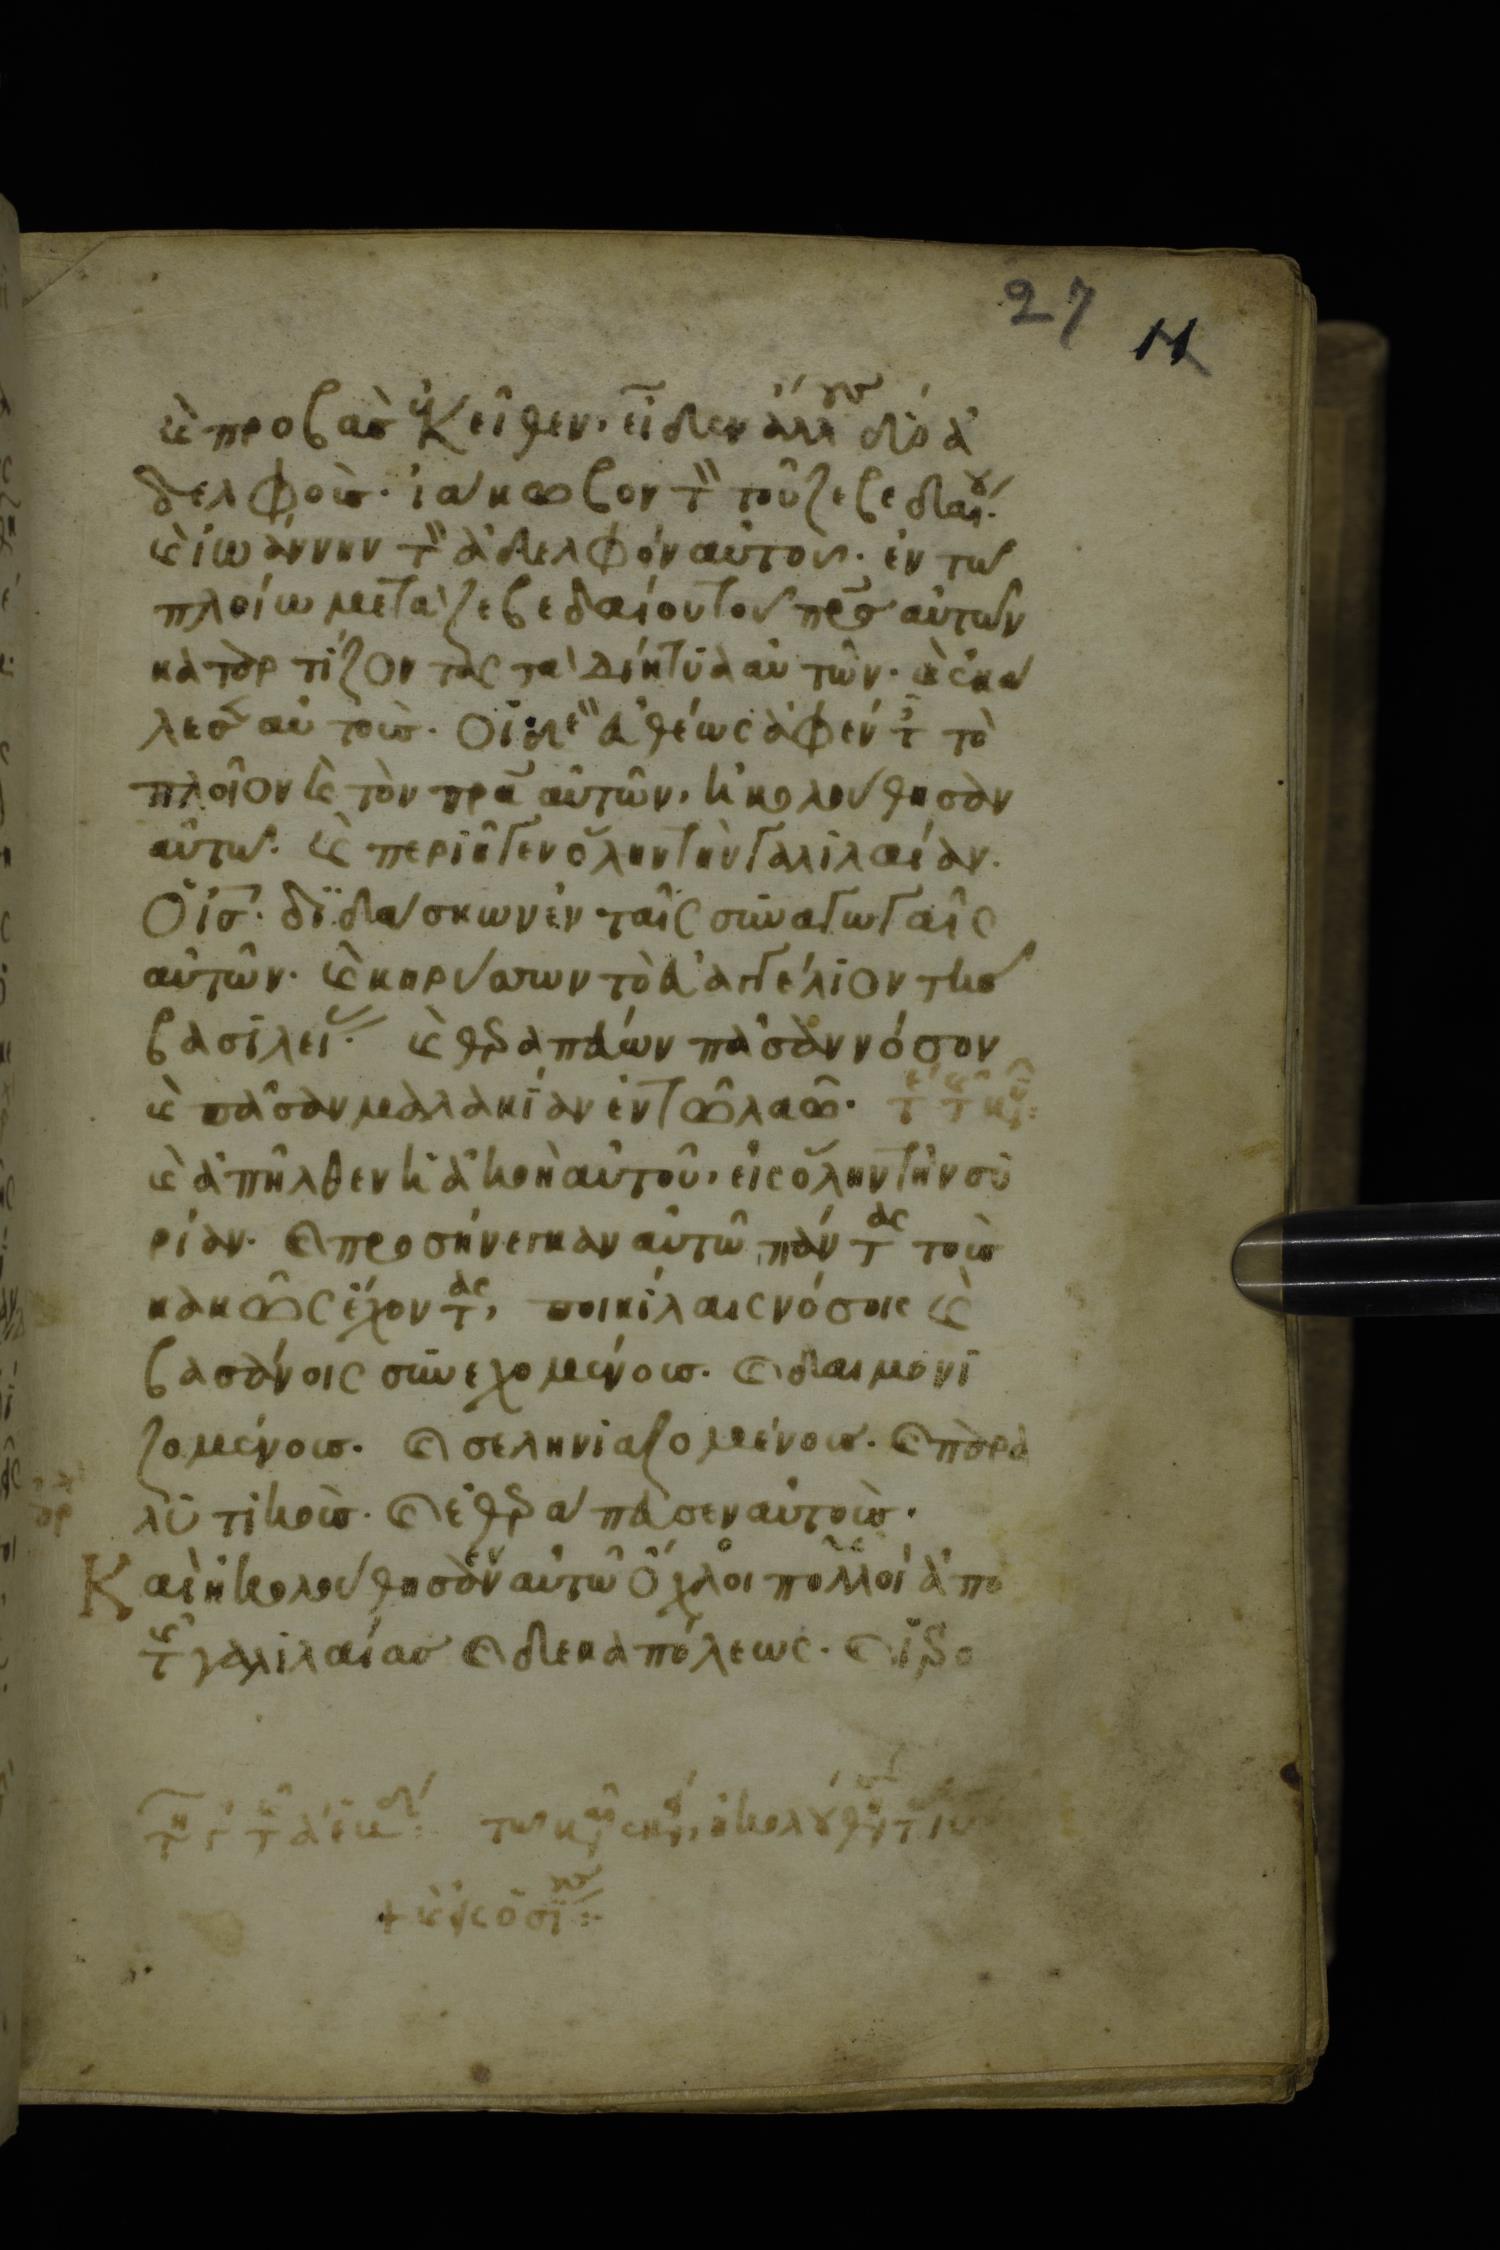 27 11
κὲ προβὰσ ἐκεῖθεν, εἶδεν ἄλλ δύο ἀ
δελφοὺσ· ἰάκωβον τ τοῦ ζεβεδαί·
κὲ ἰωάννην τ ἀδελφόν αὐτοῦ· ἐν τῶ
πλοίω μετὰ ζεβεδαίου τοῦ πρσ αὐτῶν
καταρτίζοντας τὰ δίκτϋα αὐτῶν· κὲ ἐκά
λεσ αὐτοὺσ· Οἱ δὲ εὐθέως ἀφέντ τὸ
πλοῖον κὲ τὸν πρα αὐτῶν, ἠκολούθησὰν
αὐτῶ· κὲ περιῆγεν ὅλην τὴν γαλιλαίαν·
Ὁ ἰσ· διδάσκων ἐν ταῖς σϋναγωγαῖς
αὐτῶν· κὲ κηρύσσων τὸ εὐαγγέλιον τῆσ
βασιλεί· κὲ θεραπεύων πᾶσαν νόσον
κὲ πᾶσαν μαλακίαν ἐν τῶ λαῶ·
κὲ ἀπῆλθεν ἡ ἀκοὴ αὐτοῦ, εἰς ὅλην τὴν σϋ
ρίαν· κ προσήνεγκαν αὐτῶ πάντας τοὺσ
κακῶς ἔχοντας, ποικίλαις νόσοις κὲ
βασάνοις σϋνεχομένουσ· κ δαιμονι
ζομένουσ· κ σεληνιαζομένουσ· κ παρα
λϋτικοὺσ· κ ἐθεράπευσεν αὐτοὺσ·
Καὶ ἠκολούθησὰν αὐτῶ ὄχλοι πολλοί ἀπο
τ γαλιλαίασ κ δεκαπόλεως· κ ἱερο